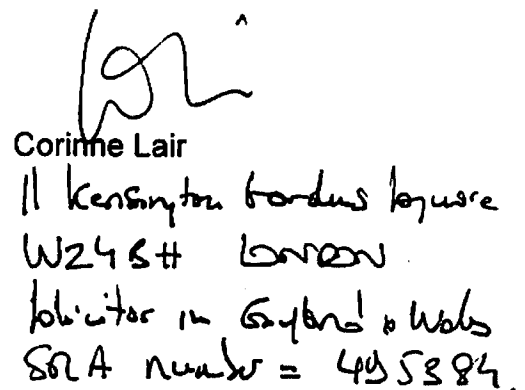 Corinne Lair
11 Kensington Gardens Square
W24BH LONDON
Solicitor in England & Wales
SRA number = 495384.